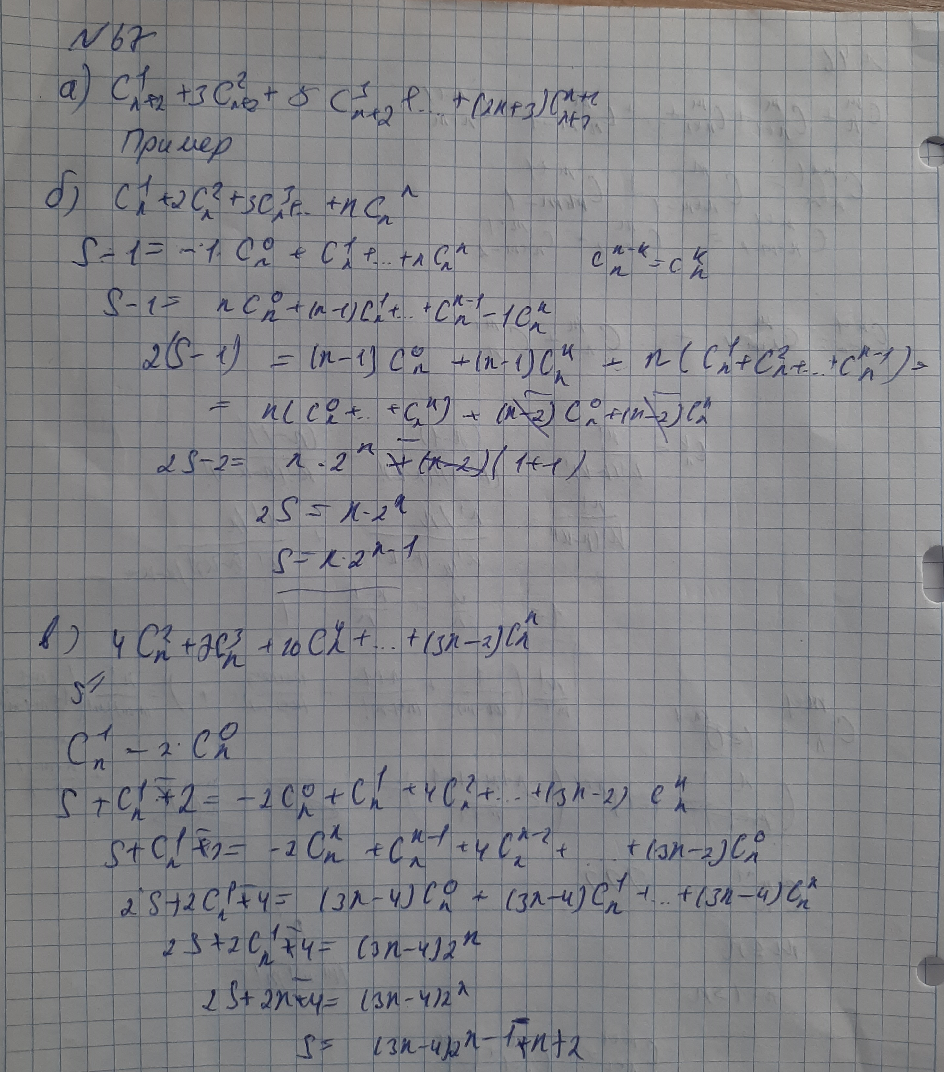 N 67
а) C_{n+2}^1 + 3C_{n+2}^2 + 5 C_{n+2}^3 + ... + (2n+3)C_{n+2}^{n+2}
Пример
б) C_n^1 + 2C_n^2 + 3C_n^3 + .. + nC_n^n
S - 1 = -1 · C_n^0 + C_n^1 + .. + nC_n^n
C_n^{n-k} = C_n^k
S - 1 = nC_n^0 + (n-1)C_n^1 + .. + C_n^{n-1} - 1C_n^n
2(S - 1) = (n-1)C_n^0 + (n-1)C_n^n + n(C_n^1 + C_n^2 + ... + C_n^{n-1}) =
= n(C_n^0 + .. + C_n^n) - (n-2)C_n^0 + (n-2)C_n^n
2S - 2 = n · 2^n - (n-2)(1+1)
2S = n · 2^n
S = n · 2^{n-1}
в) 4C_n^2 + 7C_n^3 + 10C_n^4 + ... + (3n-2)C_n^n
S =
C_n^1 - 2 · C_n^0
S + C_n^1 - 2 = -2C_n^0 + C_n^1 + 4C_n^2 + ... + (3n-2) C_n^n
S + C_n^1 - 2 = -2C_n^n + C_n^{n-1} + 4C_n^{n-2} + ... + (3n-2)C_n^0
2S + 2C_n^1 - 4 = (3n-4)C_n^0 + (3n-4)C_n^1 + ... + (3n-4)C_n^n
2S + 2C_n^1 - 4 = (3n-4)2^n
2S + 2n - 4 = (3n-4)2^n
S = (3n-4)2^{n-1} - n + 2